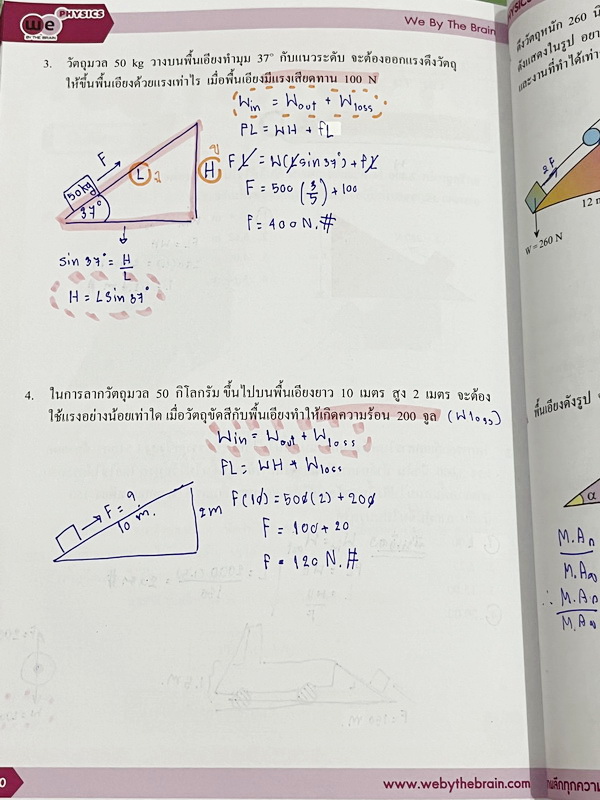 We PHYSICS
BY THE BRAIN
We By The Brain
3. วัตถุมวล 50 kg วางบนพื้นเอียงทำมุม 37° กับแนวระดับ จะต้องออกแรงดึงวัตถุ
ให้ขึ้นพื้นเอียงด้วยแรงเท่าไร เมื่อพื้นเอียงมีแรงเสียดทาน 100 N
Win = Wout + Wloss
FL = WH + fL
FL = W(Lsin37°) + fL
F = 500 (3/5) + 100
F = 400 N.#
F
L
H
50kg
37°
sin 37° = H/L
H = Lsin 37°
4. ในการลากวัตถุมวล 50 กิโลกรัม ขึ้นไปบนพื้นเอียงยาว 10 เมตร สูง 2 เมตร จะต้อง
ใช้แรงอย่างน้อยเท่าใด เมื่อวัตถุขัดสีกับพื้นเอียงทำให้เกิดความร้อน 200 จูล (Wloss)
Win = Wout + Wloss
FL = WH + Wloss
F(10) = 500(2) + 200
F = 100 + 20
F = 120 N.#
F = ?
10 m.
2m
0
www.webythebrain.com
PHYSICS
ดึงวัตถุหนัก 260 นิ
ดังแสดงในรูป
และงานที่ทำได้เท่า
F
12 m
W = 260 N
พื้นเอียงดังรูป
α
M.A
M.A
∴ M.A
M.A